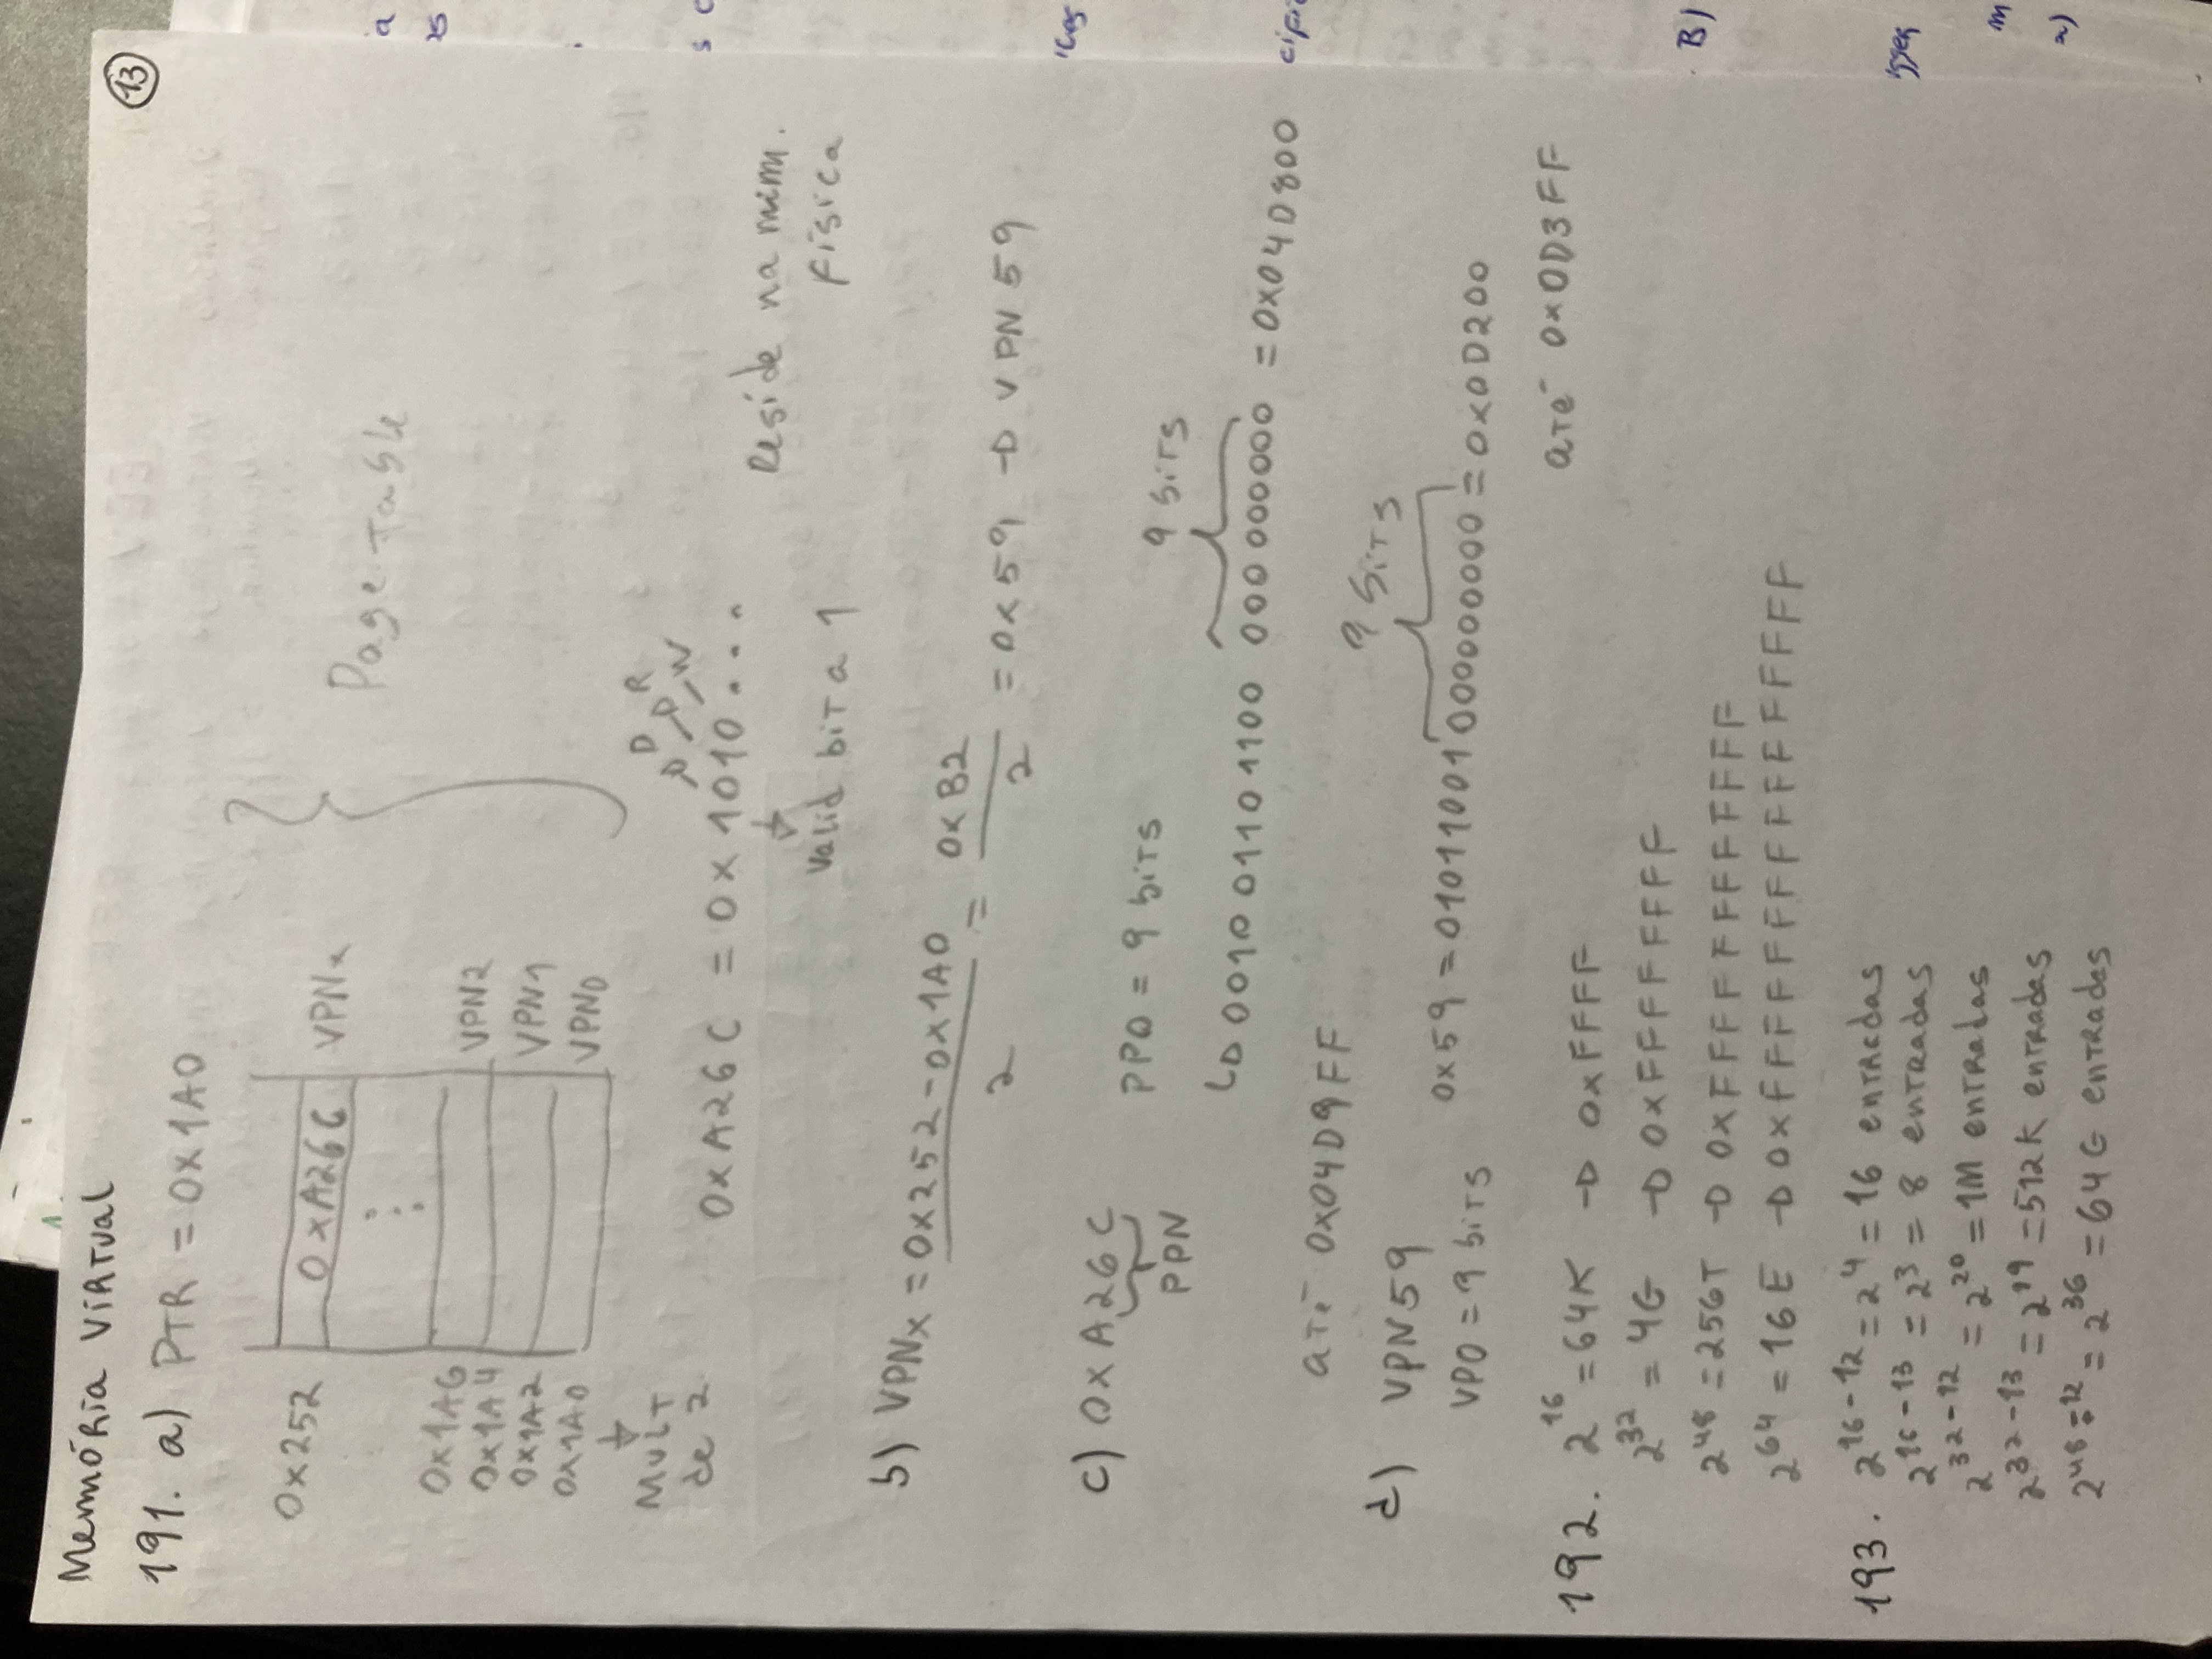 Memória Virtual
13
191. a) PTR = 0x1A0
0x252 0xA26C VPNx
Page Table
0x1A6
0x1A4 VPN2
0x1A2 VPN1
0x1A0 VPN0
Mult
de 2
D R
W
0xA26C = 0x1010...
Reside na mem.
física
Valid bit a 1
b) VPNx = 0x252 - 0x1A0 / 2 = 0xB2 / 2 = 0x59 → VPN 59
c) 0xA26C
PPN
PPO = 9 bits
9 bits
0010 0110 1100 000 000000 = 0x04D800
até 0x04D9FF
d) VPN59
VPO = 9 bits
9 bits
0x59 = 01011001 000000000 = 0x0D200
até 0x0D3FF
192. 2^16 = 64K → 0xFFFF
2^32 = 4G → 0xFFFFFFFF
2^48 = 256T → 0xFFFFFFFFFFFF
2^64 = 16E → 0xFFFFFFFFFFFFFFFF
193. 2^16-12 = 2^4 = 16 entradas
2^16-13 = 2^3 = 8 entradas
2^32-12 = 2^20 = 1M entradas
2^32-13 = 2^19 = 512K entradas
2^48-12 = 2^36 = 64G entradas
B)